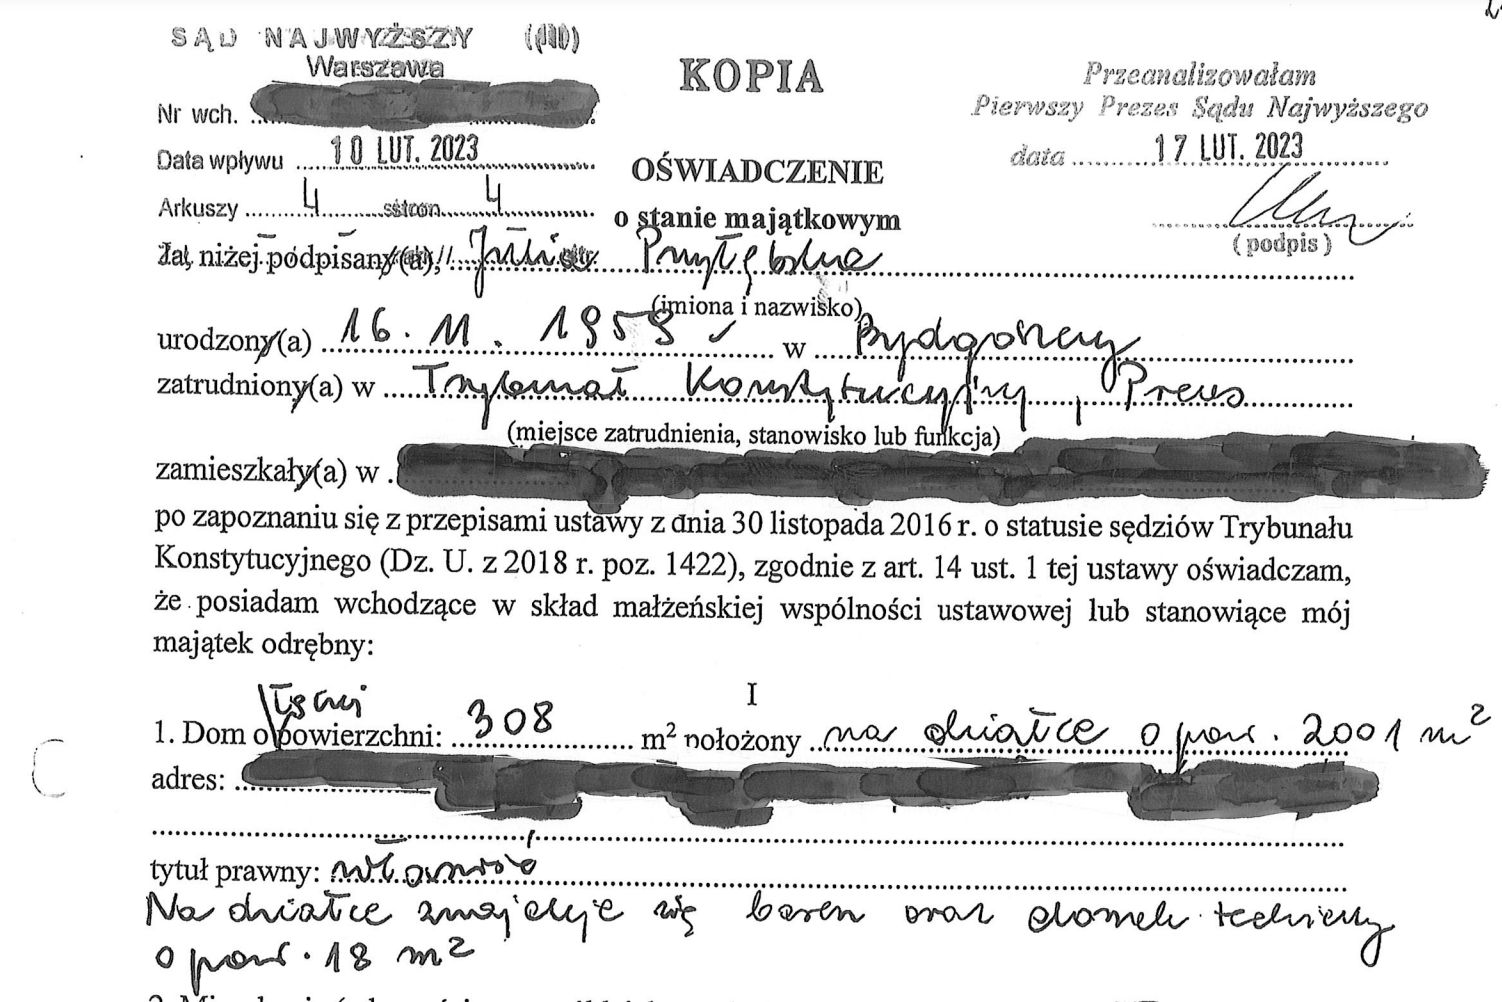 SĄD NAJWYŻSZY
Warszawa
Nr wch.
Data wpływu 10 LUT. 2023
Arkuszy 4 stron 4
KOPIA
Przeanalizowałam
Pierwszy Prezes Sądu Najwyższego
data 17 LUT. 2023
(podpis)
OŚWIADCZENIE
o stanie majątkowym
Ja, niżej podpisany(a), Julia Przyłębska
(imiona i nazwisko)
urodzony(a) 16. 11. 1959 w Bydgoszczy
zatrudniony(a) w Trybunał Konstytucyjny, Prezes
(miejsce zatrudnienia, stanowisko lub funkcja)
zamieszkały(a) w
po zapoznaniu się z przepisami ustawy z dnia 30 listopada 2016 r. o statusie sędziów Trybunału
Konstytucyjnego (Dz. U. z 2018 r. poz. 1422), zgodnie z art. 14 ust. 1 tej ustawy oświadczam,
że posiadam wchodzące w skład małżeńskiej wspólności ustawowej lub stanowiące mój
majątek odrębny:
I
łącznej
1. Dom o powierzchni: 308 m² położony na działce o pow. 2001 m²
adres:
tytuł prawny: własność
Na działce znajduje się basen oraz domek techniczny
o pow. 18 m²